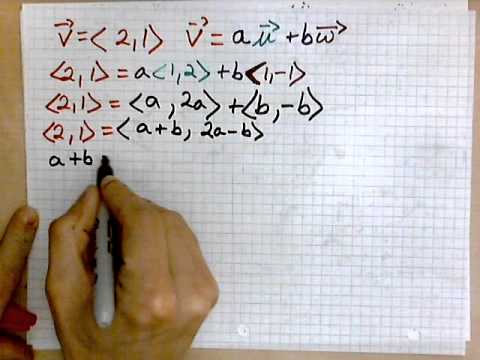 v⃗ = ⟨2, 1⟩ v⃗ = a u⃗ + b w⃗
⟨2, 1⟩ = a⟨1, 2⟩ + b⟨1, -1⟩
⟨2, 1⟩ = ⟨a, 2a⟩ + ⟨b, -b⟩
⟨2, 1⟩ = ⟨a + b, 2a - b⟩
a + b